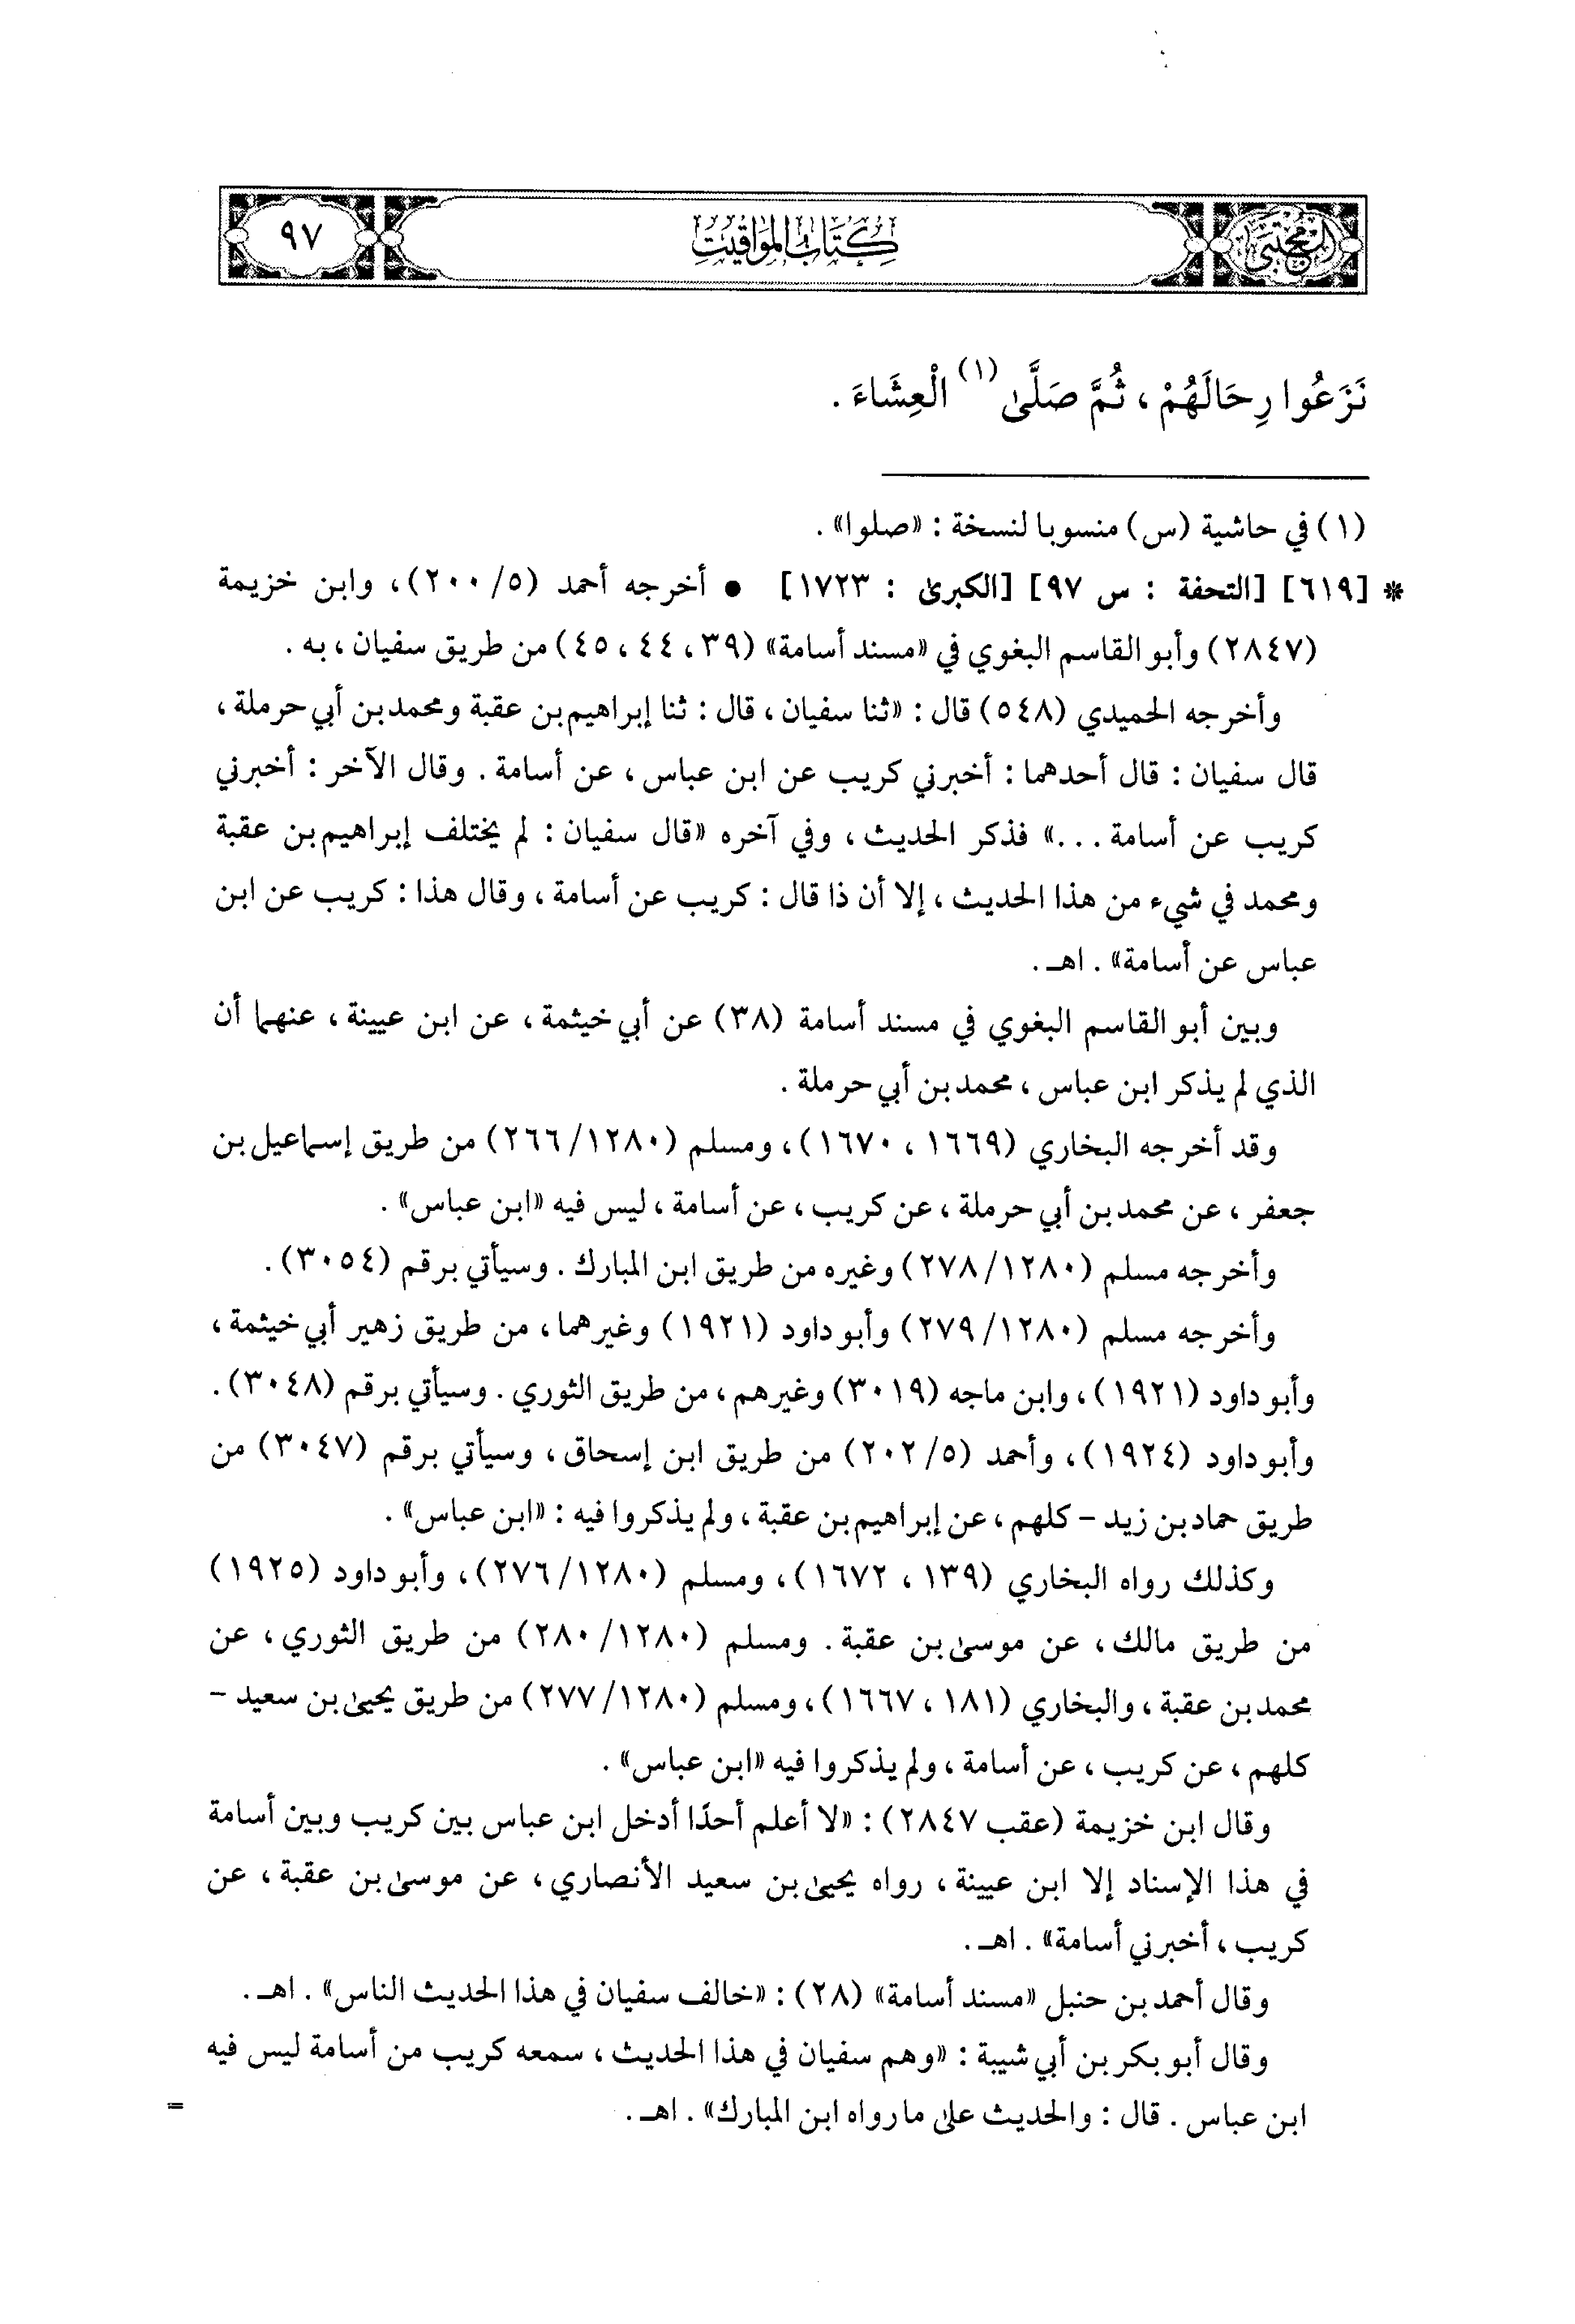 المجتبى
كتاب المواقيت
٩٧
نَزَعُوا رِحَالَهُمْ ، ثُمَّ صَلَّىٰ (١) الْعِشَاءَ .
(١) في حاشية (س) منسوبا لنسخة : «صلوا» .
* [٦١٩] [التحفة : س ٩٧] [الكبرىٰ : ١٧٢٣] ● أخرجه أحمد (٥/ ٢٠٠)، وابن خزيمة
(٢٨٤٧) وأبو القاسم البغوي في «مسند أسامة» (٣٩، ٤٤، ٤٥) من طريق سفيان ، به .
وأخرجه الحميدي (٥٤٨) قال : «ثنا سفيان ، قال : ثنا إبراهيم بن عقبة ومحمد بن أبي حرملة ،
قال سفيان : قال أحدهما : أخبرني كريب عن ابن عباس ، عن أسامة . وقال الآخر : أخبرني
كريب عن أسامة ...» فذكر الحديث ، وفي آخره «قال سفيان : لم يختلف إبراهيم بن عقبة
ومحمد في شيء من هذا الحديث ، إلا أن ذا قال : كريب عن أسامة ، وقال هذا : كريب عن ابن
عباس عن أسامة» . اهـ .
وبين أبو القاسم البغوي في مسند أسامة (٣٨) عن أبي خيثمة ، عن ابن عيينة ، عنهما أن
الذي لم يذكر ابن عباس ، محمد بن أبي حرملة .
وقد أخرجه البخاري (١٦٦٩ ، ١٦٧٠)، ومسلم (١٢٨٠/ ٢٦٦) من طريق إسماعيل بن
جعفر ، عن محمد بن أبي حرملة ، عن كريب ، عن أسامة ، ليس فيه «ابن عباس» .
وأخرجه مسلم (١٢٨٠/ ٢٧٨) وغيره من طريق ابن المبارك . وسيأتي برقم (٣٠٥٤).
وأخرجه مسلم (١٢٨٠/ ٢٧٩) وأبو داود (١٩٢١) وغيرهما، من طريق زهير أبي خيثمة ،
وأبو داود (١٩٢١)، وابن ماجه (٣٠١٩) وغيرهم ، من طريق الثوري . وسيأتي برقم (٣٠٤٨).
وأبو داود (١٩٢٤)، وأحمد (٥/ ٢٠٢) من طريق ابن إسحاق ، وسيأتي برقم (٣٠٤٧) من
طريق حماد بن زيد - كلهم ، عن إبراهيم بن عقبة ، ولم يذكروا فيه : «ابن عباس» .
وكذلك رواه البخاري (١٣٩ ، ١٦٧٢)، ومسلم (١٢٨٠/ ٢٧٦)، وأبو داود (١٩٢٥)
من طريق مالك ، عن موسىٰ بن عقبة . ومسلم (١٢٨٠/ ٢٨٠) من طريق الثوري ، عن
محمد بن عقبة ، والبخاري (١٨١ ، ١٦٦٧)، ومسلم (١٢٨٠/ ٢٧٧) من طريق يحيىٰ بن سعيد -
كلهم ، عن كريب ، عن أسامة ، ولم يذكروا فيه «ابن عباس» .
وقال ابن خزيمة (عقب ٢٨٤٧) : «لا أعلم أحدًا أدخل ابن عباس بين كريب وبين أسامة
في هذا الإسناد إلا ابن عيينة ، رواه يحيىٰ بن سعيد الأنصاري ، عن موسىٰ بن عقبة ، عن
كريب ، أخبرني أسامة» . اهـ .
وقال أحمد بن حنبل «مسند أسامة» (٢٨) : «خالف سفيان في هذا الحديث الناس» . اهـ .
وقال أبو بكر بن أبي شيبة : «وهم سفيان في هذا الحديث ، سمعه كريب من أسامة ليس فيه
ابن عباس . قال : والحديث على ما رواه ابن المبارك» . اهـ .
=